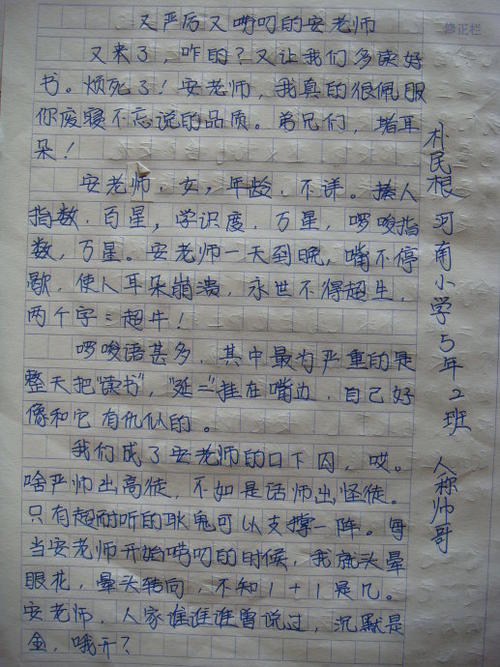 又严厉又唠叨的安老师
修正栏
又来了，咋的？又让我们多读好
书。烦死了！安老师，我真的很佩服
你废寝不忘说的品质。弟兄们，堵耳
朵！
安老师，女，年龄，不详。揍人
指数，百星，学识度，万星，啰唆指
数，万星。安老师一天到晚，嘴不停
歇，使人耳朵崩溃，永世不得超生，
两个字：超牛！
啰唆语甚多，其中最为严重的是
整天把“读书”，“延二”挂在嘴边，自己好
像和它有仇似的。
我们成了安老师的口下囚，哎。
啥严师出高徒，不如是话师出怪徒。
只有超耐听的耿鬼可以支撑一阵。每
当安老师开始唠叨的时候，我就头晕
眼花，晕头转向，不知1+1是几。
安老师，人家谁谁谁曾说过，沉默是
金，哦了？
朴民根 河南小学5年2班 人称帅哥